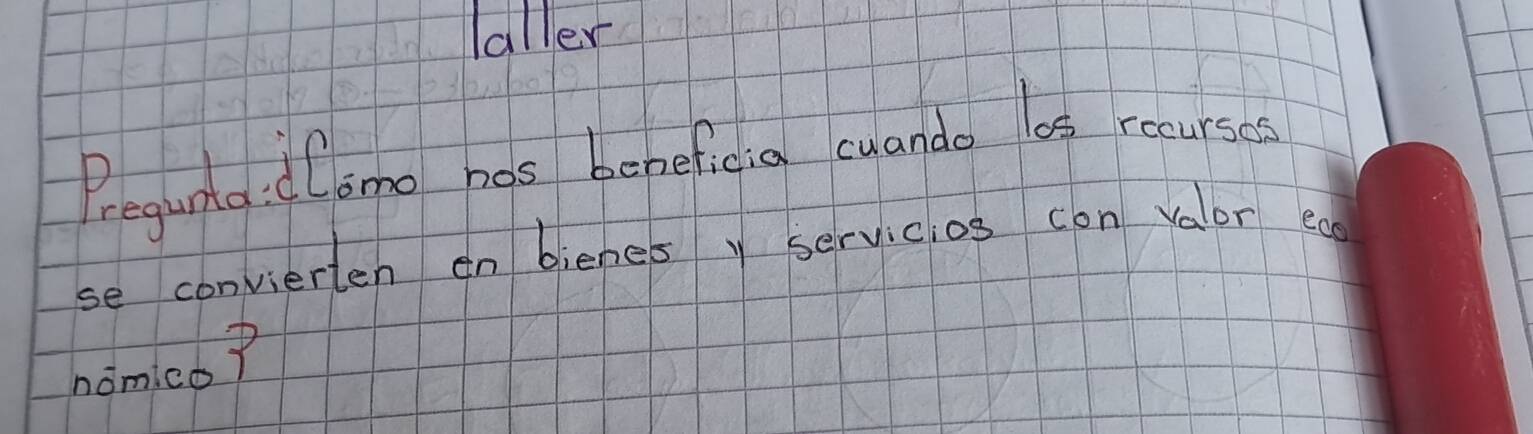 Taller
Pregunta: ¿Cómo nos beneficia cuando los recursos
se convierten en bienes y servicios con valor eco
nómico?